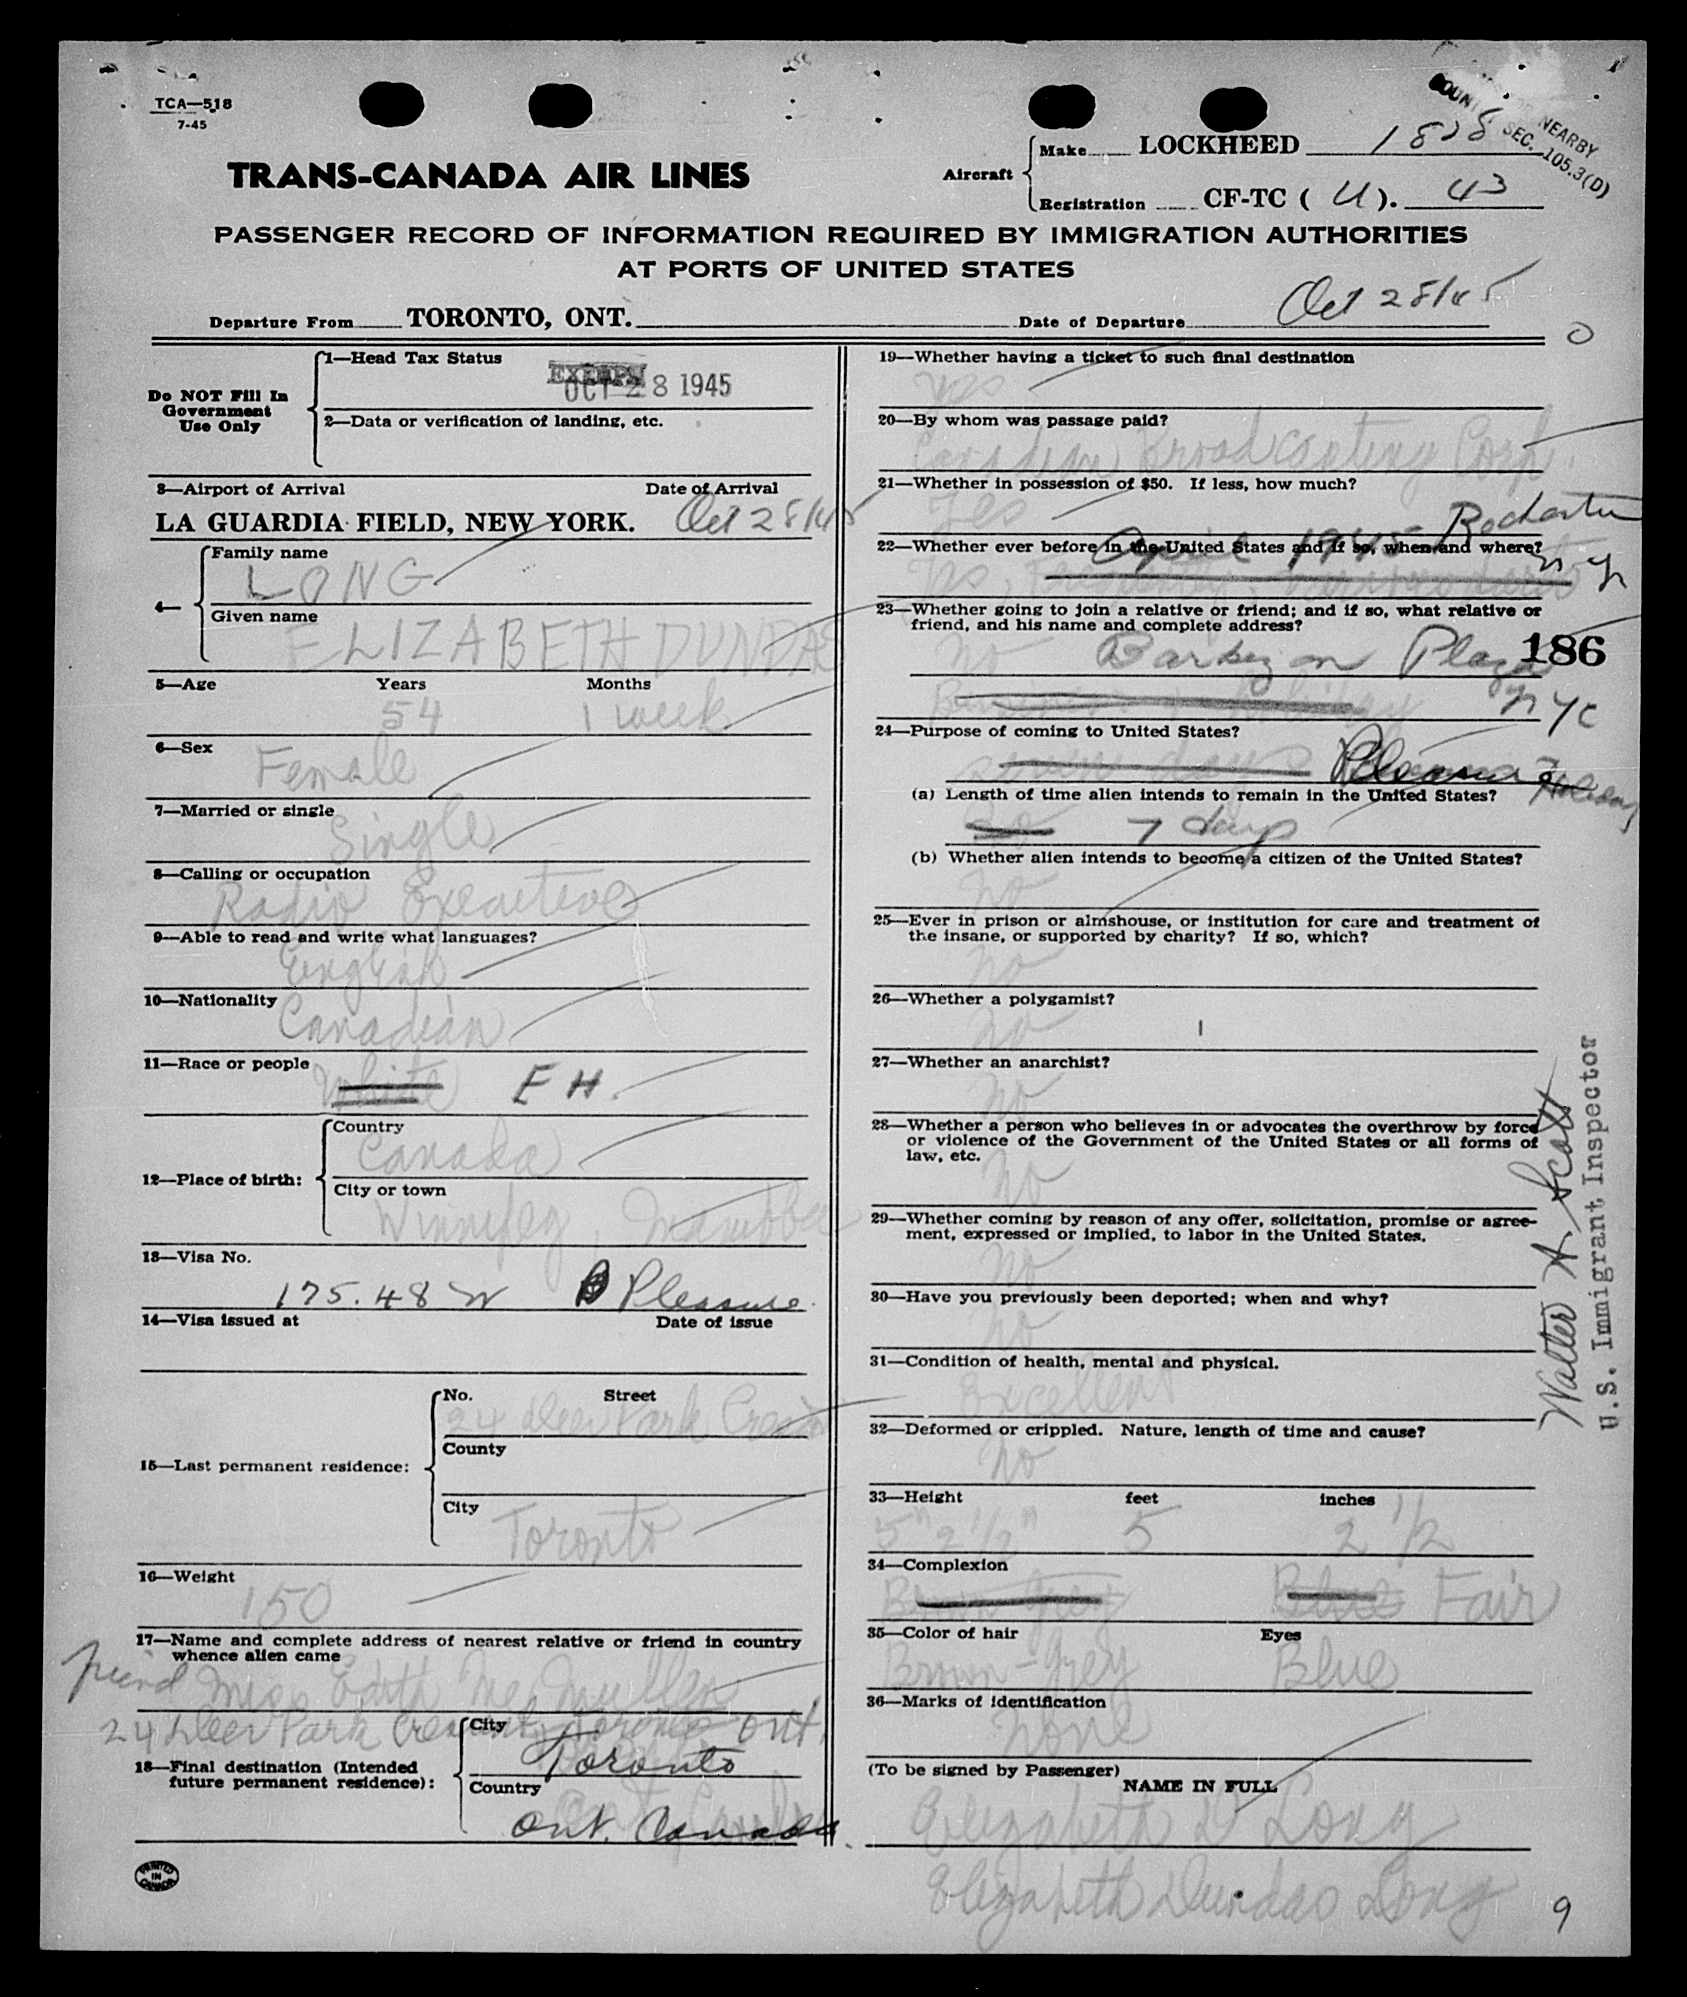 TCA—518
7-45
TRANS-CANADA AIR LINES
Aircraft
Make LOCKHEED 1828
Registration CF-TC ( U ). 43
NEARBY
SEC. 105.3(D)
PASSENGER RECORD OF INFORMATION REQUIRED BY IMMIGRATION AUTHORITIES
AT PORTS OF UNITED STATES
Departure From TORONTO, ONT. Date of Departure Oct 28/45
0
Do NOT Fill In
Government
Use Only
1—Head Tax Status
EXEMPT
OCT 28 1945
2—Data or verification of landing, etc.
3—Airport of Arrival Date of Arrival
LA GUARDIA FIELD, NEW YORK. Oct 28/45
4—
Family name
LONG
Given name
ELIZABETH DUNDAS
5—Age Years Months
54 1 week
6—Sex
Female
7—Married or single
Single
8—Calling or occupation
Radio Executive
9—Able to read and write what languages?
English
10—Nationality
Canadian
11—Race or people
White EH.
12—Place of birth:
Country
Canada
City or town
Winnipeg, Manitoba
13—Visa No.
175.48 W B Pleasure.
14—Visa issued at Date of issue
15—Last permanent residence:
No. Street
24 Deer Park Crescent
County
City
Toronto
16—Weight
150
17—Name and complete address of nearest relative or friend in country
whence alien came
friend Miss Edith McMullen
24 Deer Park Crescent, Toronto Ont.
18—Final destination (Intended
future permanent residence):
City
Toronto
Country
Ont. Canada
PRINTED
IN
CANADA
19—Whether having a ticket to such final destination
Yes
20—By whom was passage paid?
Canadian Broadcasting Corp.
21—Whether in possession of $50. If less, how much?
Yes
April 1945 Rochester
22—Whether ever before in the United States and if so, when and where?
N Y
Yes,
23—Whether going to join a relative or friend; and if so, what relative or
friend, and his name and complete address?
186
No Barbizon Plaza
NYC
24—Purpose of coming to United States?
seven days Pleasure
Holiday
(a) Length of time alien intends to remain in the United States?
No 7 days
(b) Whether alien intends to become a citizen of the United States?
No
25—Ever in prison or almshouse, or institution for care and treatment of
the insane, or supported by charity? If so, which?
No
26—Whether a polygamist?
No
27—Whether an anarchist?
No
28—Whether a person who believes in or advocates the overthrow by force
or violence of the Government of the United States or all forms of
law, etc.
No
29—Whether coming by reason of any offer, solicitation, promise or agree-
ment, expressed or implied, to labor in the United States.
No
30—Have you previously been deported; when and why?
No
31—Condition of health, mental and physical.
Excellent
32—Deformed or crippled. Nature, length of time and cause?
No
33—Height feet inches
5" 2 1/2" 5 2 1/2
34—Complexion
Brown Grey Blue Fair
35—Color of hair Eyes
Brown-Grey Blue
36—Marks of identification
None
(To be signed by Passenger)
NAME IN FULL
Elizabeth D Long
Elizabeth Dundas Long
9
Walter A. Scott
U.S. Immigrant Inspector